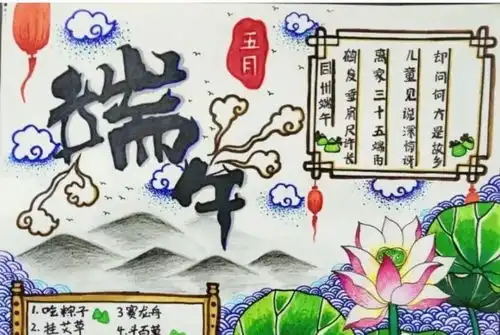 端午
五月
同州端午
鹤发垂肩尺许长
离家三十五端阳
儿童见说深惊讶
却问何方是故乡
1.吃粽子 3赛龙舟
2.挂艾草 4.斗百草